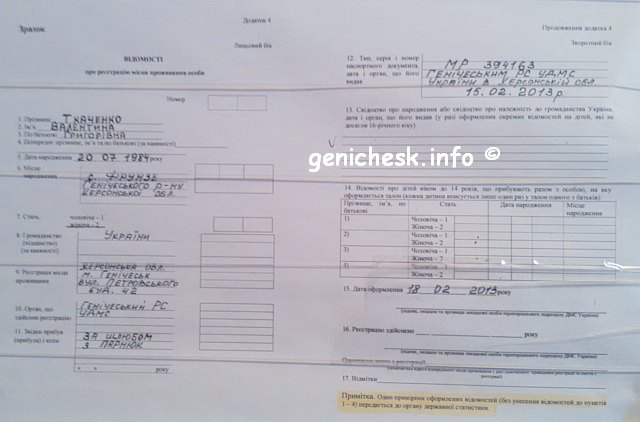 Зразок
Додаток 4
Лицьовий бік
ВІДОМОСТІ
про реєстрацію місця проживання особи
Номер
1. Прізвище ТКАЧЕНКО
2. Ім'я ВАЛЕНТИНА
3. По батькові ГРИГОРІВНА
4. Попереднє прізвище, ім'я та по батькові (за наявності)
5. Дата народження 20 07 1984
6. Місце народження
с. ФРУНЗЕ
ГЕНІЧЕСЬКОГО Р-НУ
ХЕРСОНСЬКОЇ ОБЛ.
7. Стать: чоловіча – 1
жіноча – 2
8. Громадянство (підданство) (за наявності)
УКРАЇНИ
9. Реєстрація місця проживання
ХЕРСОНСЬКА ОБЛ.
М. ГЕНІЧЕСЬК
ВУЛ. ПЕТРОВСЬКОГО
БУД. 42
10. Орган, що здійснив реєстрацію
ГЕНІЧЕСЬКИЙ РС
УДМС
11. Звідки прибув (прибула) і коли
ЗА ШЛЮБОМ
З ПАРНЮК
« » року
Продовження додатка 4
Зворотний бік
12. Тип, серія і номер паспортного документа, дата і орган, що його видав
МР 394163
ГЕНІЧЕСЬКИМ РС УДМС
УКРАЇНИ В ХЕРСОНСЬКІЙ ОБЛ.
15. 02. 2013р
13. Свідоцтво про народження або свідоцтво про належність до громадянства України,
дата і орган, що його видав (у разі оформлення окремих відомостей на дітей, які не
досягли 16-річного віку)
genichesk.info ©
14. Відомості про дітей віком до 14 років, що прибувають разом з особою, на яку
оформляється талон (кожна дитина вписується лише один раз у талон одного з батьків):
Прізвище, ім'я, по батькові
Стать
Дата народження
Місце народження
1)
Чоловіча – 1
Жіноча – 2
2)
Чоловіча – 1
Жіноча – 2
3)
Чоловіча – 1
Жіноча – 2
4)
Чоловіча – 1
Жіноча – 2
15. Дата оформлення 18 02 2013 року
(підпис, посада та прізвище посадової особи територіального підрозділу ДМС України)
16. Реєстрацію здійснено року
(підпис, посада та прізвище посадової особи територіального підрозділу ДМС України)
17. Відмітки
Примітка. Один примірник оформлених відомостей (без унесення відомостей до пунктів
1 – 4) передається до органу державної статистики.